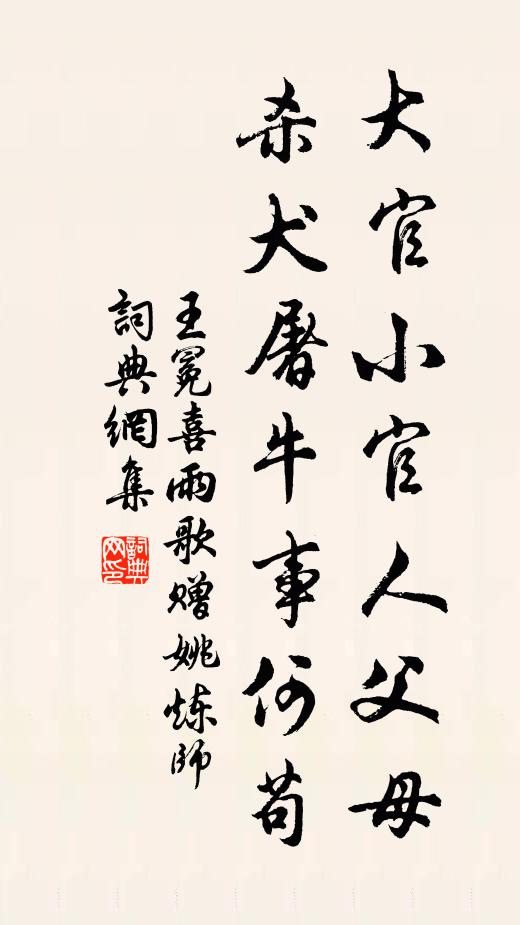 大官小官人父母
杀犬屠牛事何苟
王冕喜雨歌赠姚炼师
詞典網集
詞典网印